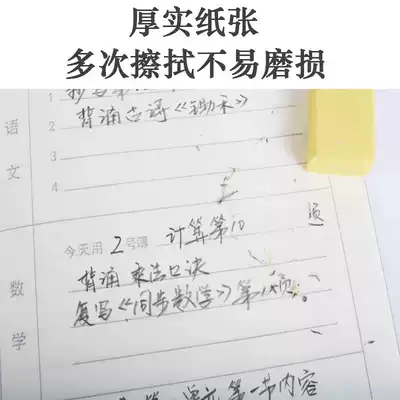 厚实纸张
多次擦拭不易磨损
1
2 背诵古诗《锄禾》
3
4
语文
今天用2号簿 计算第10页
背诵乘法口诀
复写《同步数学》第
数学
第一节内容